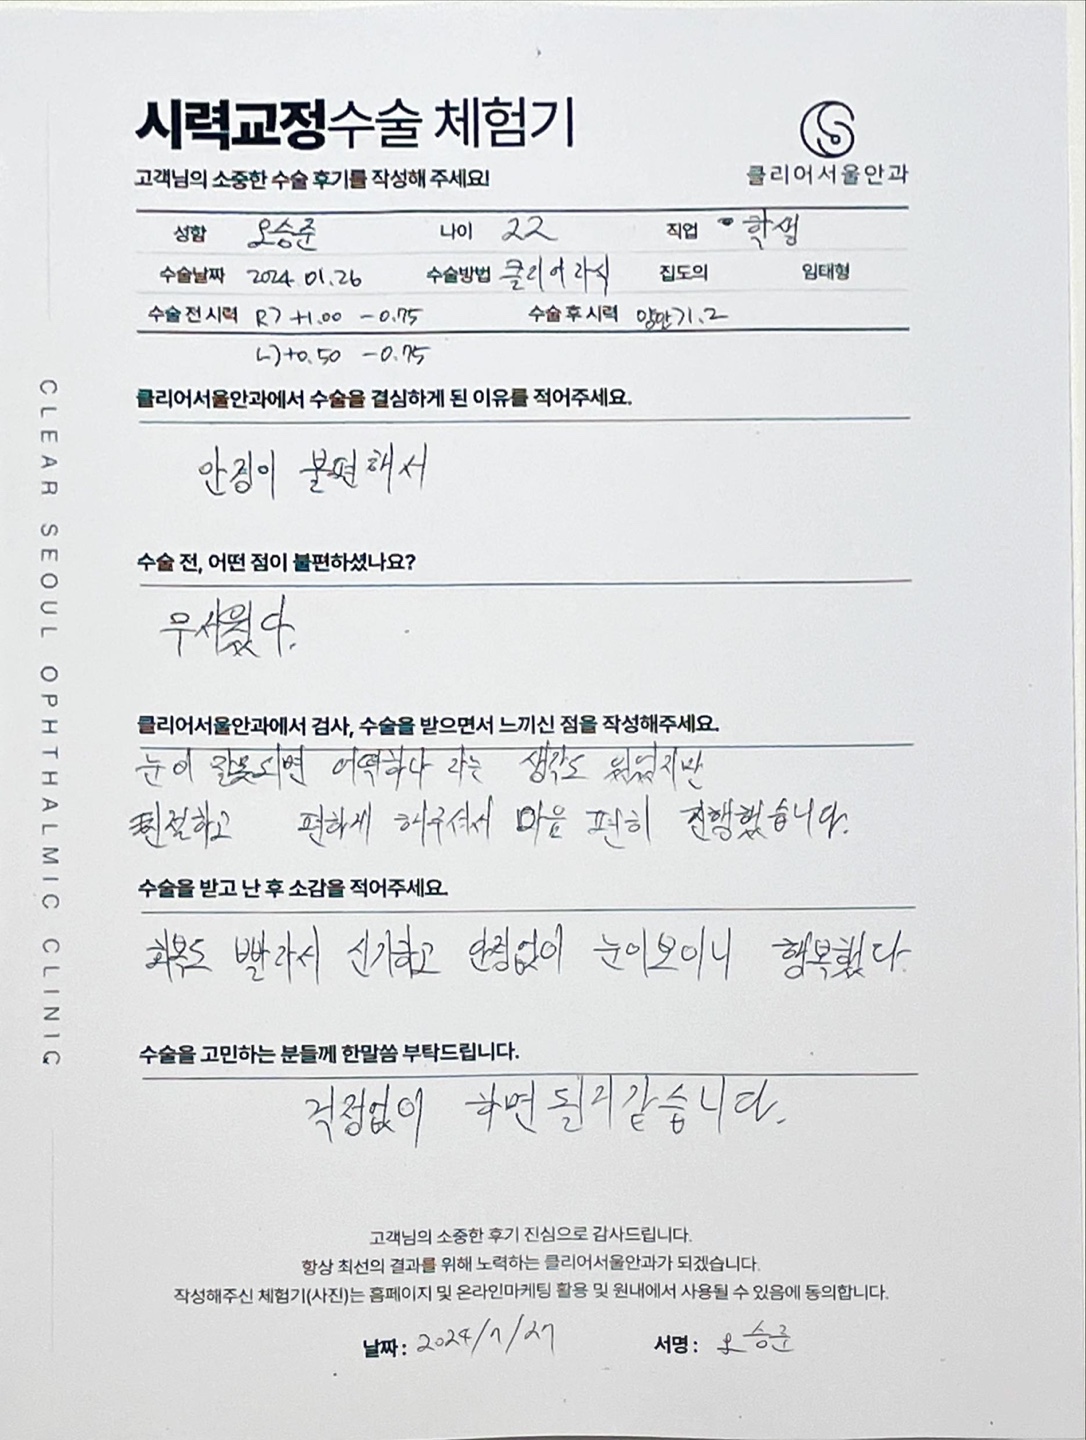 시력교정수술 체험기
고객님의 소중한 수술 후기를 작성해 주세요!
클리어서울안과
성함 오승준 나이 22 직업 학생
수술날짜 2024.01.26 수술방법 클리어라식 집도의 임태형
수술 전 시력 R) +1.00 -0.75 수술 후 시력 양안 1.2
L) +0.50 -0.75
클리어서울안과에서 수술을 결심하게 된 이유를 적어주세요.
안경이 불편해서
수술 전, 어떤 점이 불편하셨나요?
무서웠다.
클리어서울안과에서 검사, 수술을 받으면서 느끼신 점을 작성해주세요.
눈이 잘못되면 어떡하나 라는 생각도 있었지만
친절하고 편하게 해주셔서 마음 편히 진행했습니다.
수술을 받고 난 후 소감을 적어주세요.
회복도 빨라서 신기하고 안경없이 눈이보이니 행복했다.
수술을 고민하는 분들께 한말씀 부탁드립니다.
걱정없이 하면 될거같습니다.
고객님의 소중한 후기 진심으로 감사드립니다.
항상 최선의 결과를 위해 노력하는 클리어서울안과가 되겠습니다.
작성해주신 체험기(사진)는 홈페이지 및 온라인마케팅 활용 및 원내에서 사용될 수 있음에 동의합니다.
날짜 : 2024/1/27 서명 : 오승준
CLEAR SEOUL OPHTHALMIC CLINIC